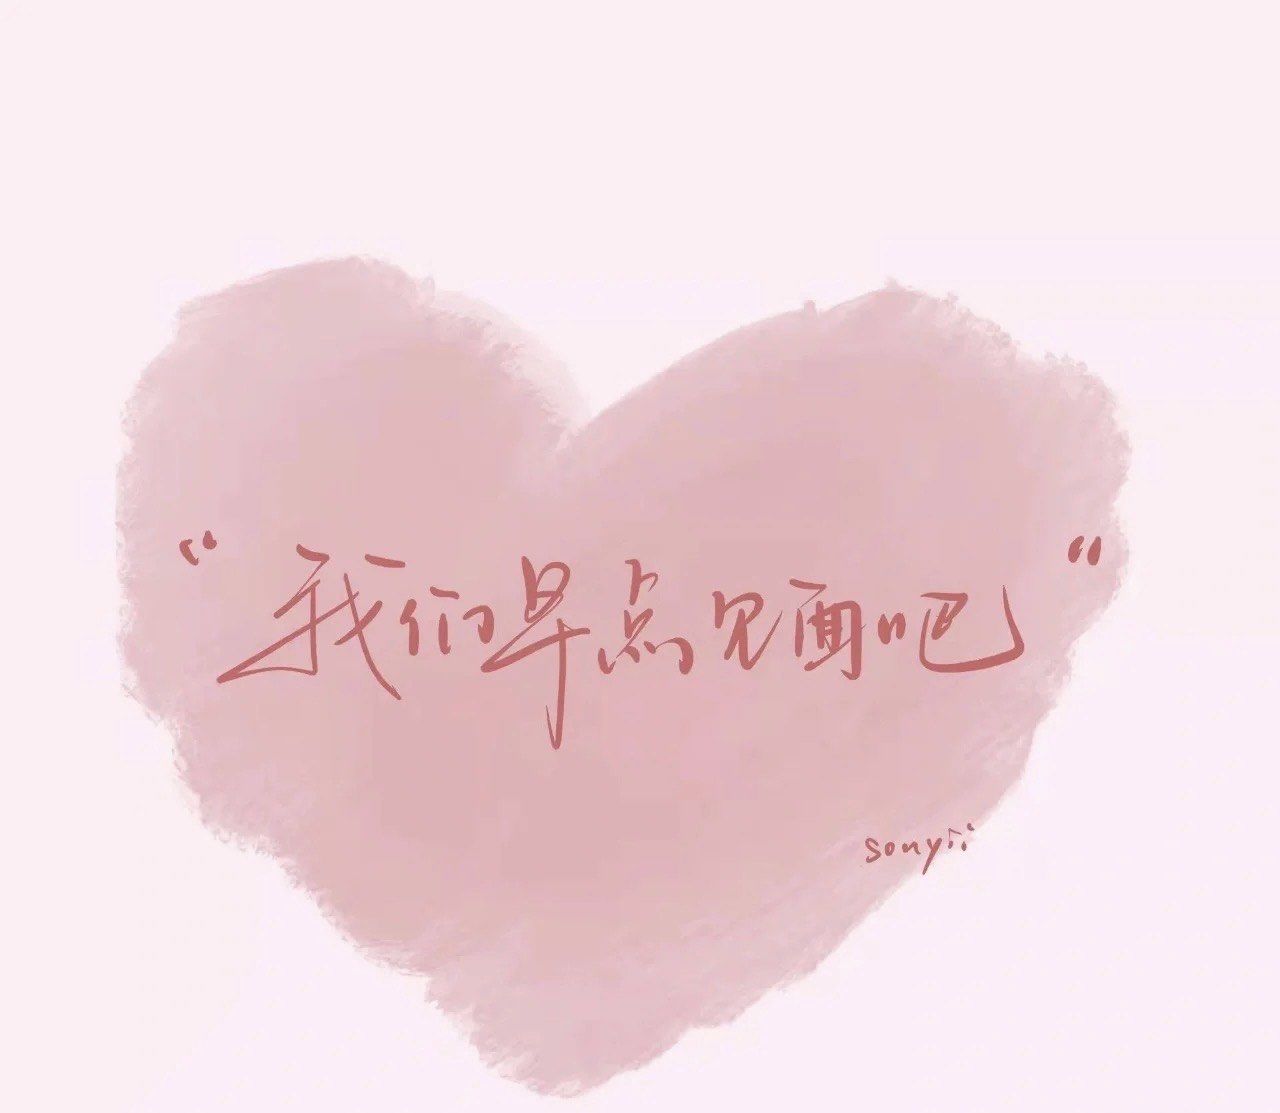 “我们早点见面吧”
sonyii